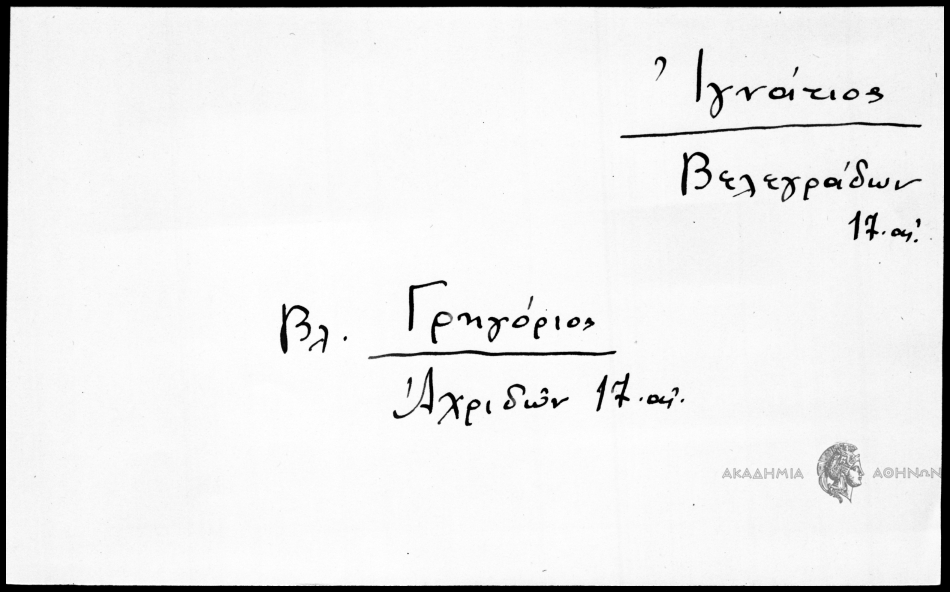 Ἰγνάτιος
Βελεγράδων
17. αἰ.
Βλ. Γρηγόριος
Ἀχριδῶν 17. αἰ.
ΑΚΑΔΗΜΙΑ ΑΘΗΝΩΝ